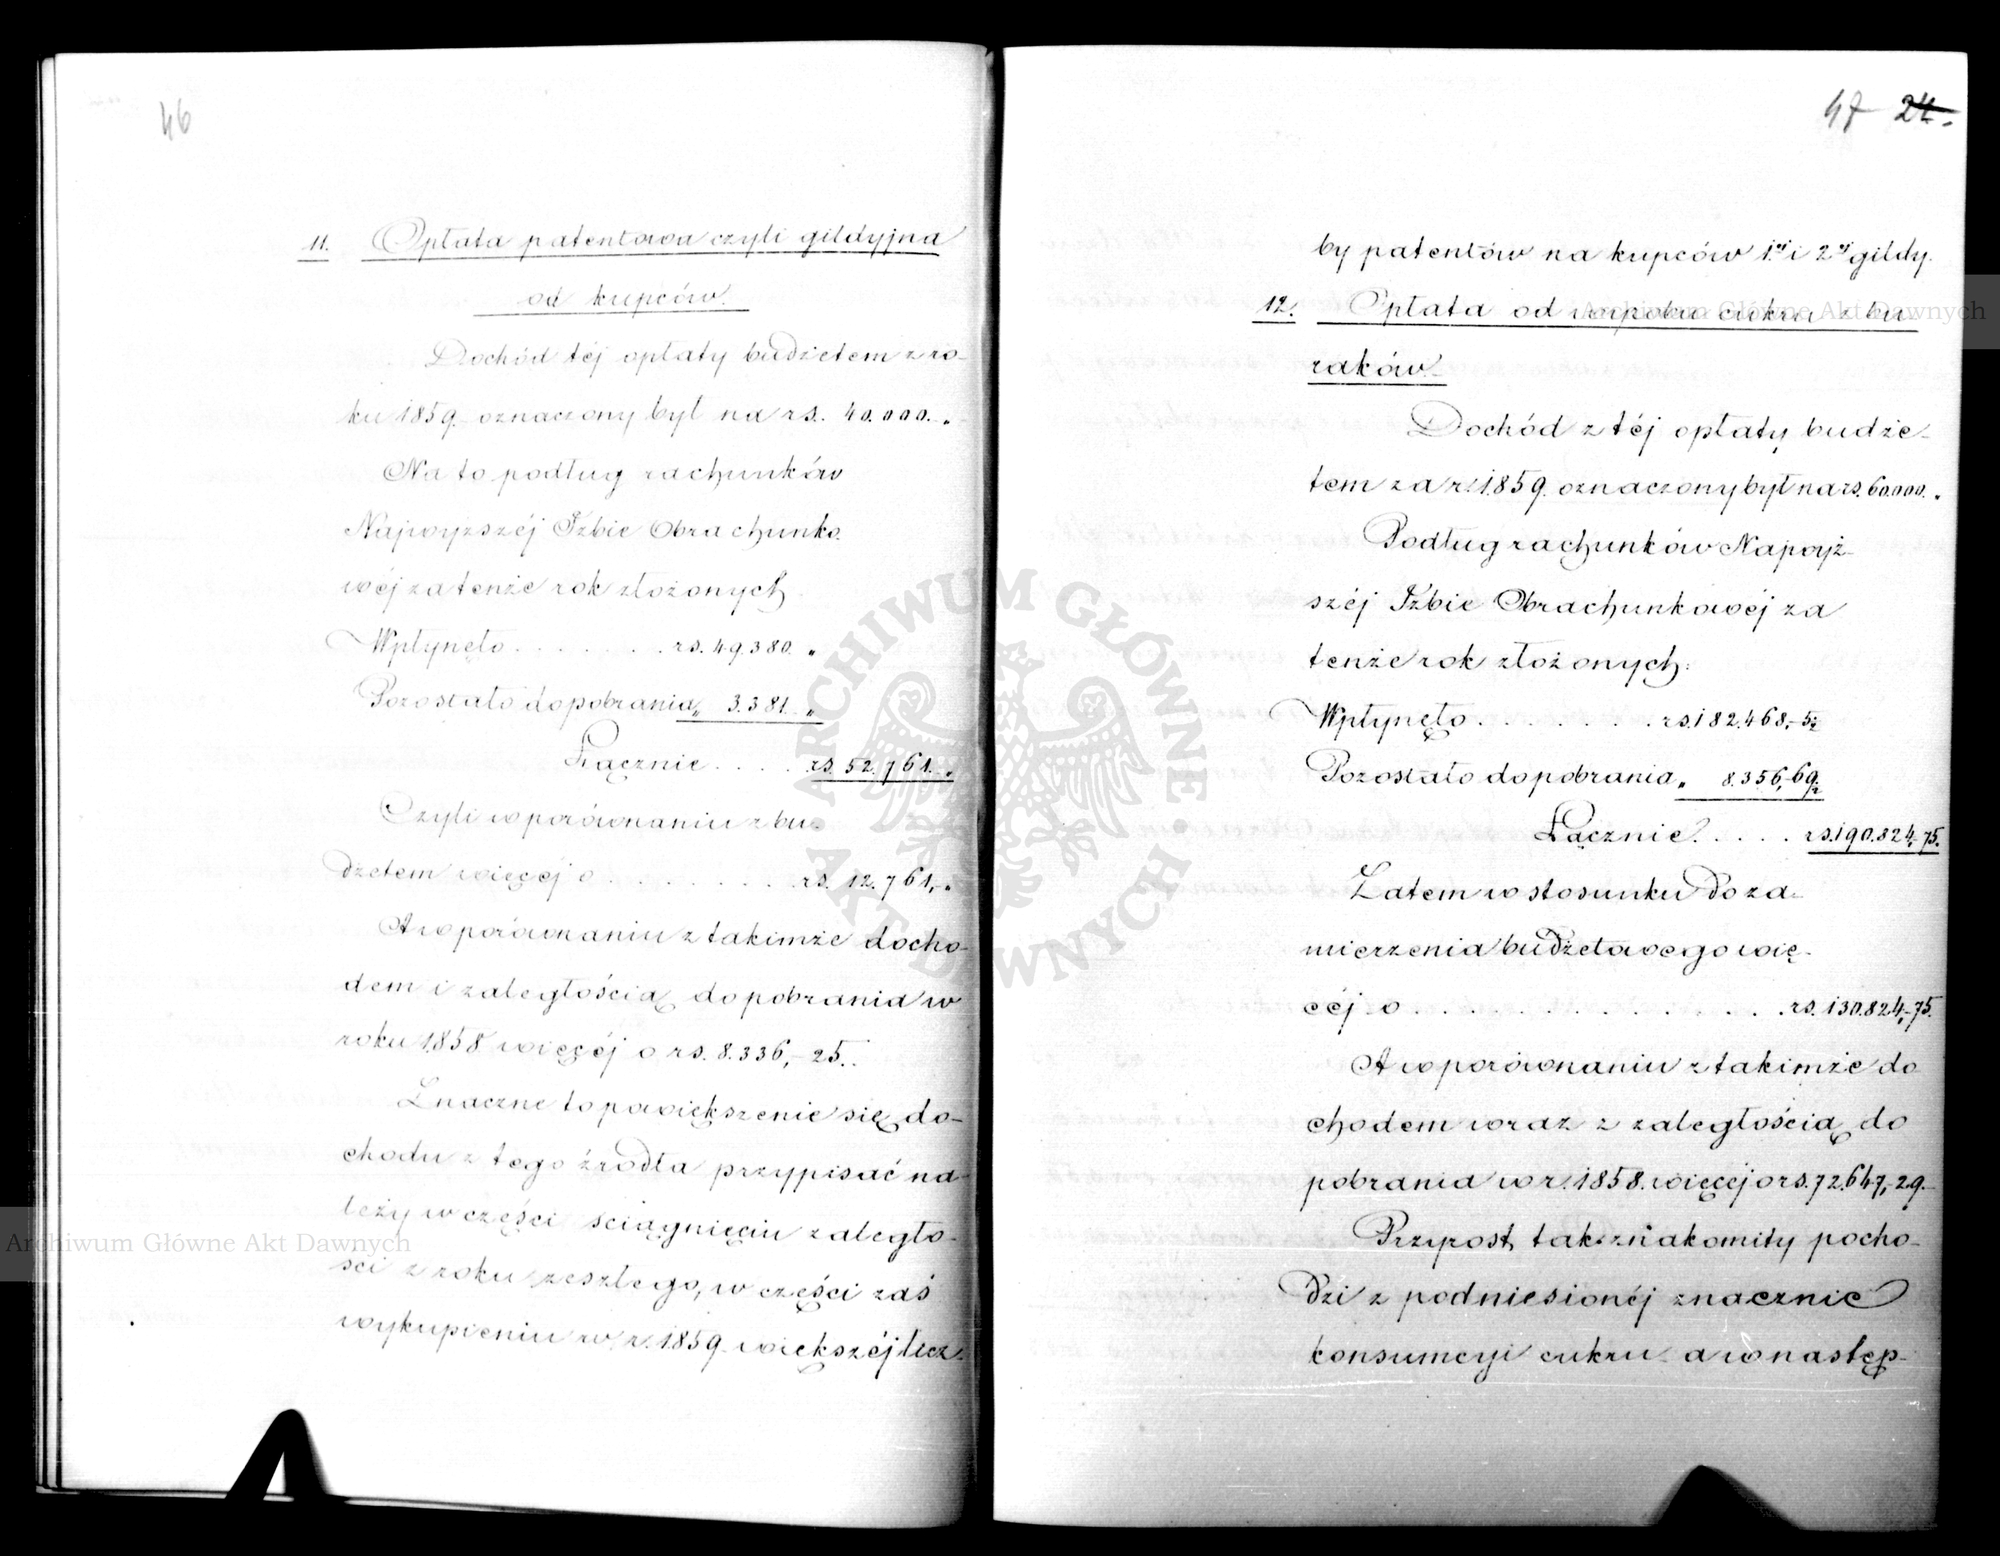 46
11. Opłata patentowa czyli gildyjna
od kupców.
Dochód téj opłaty budżetem z ro-
ku 1859. oznaczony był na rs. 40.000. "
Na to podług rachunków
Najwyższéj Izbie Obrachunko-
wéj za tenże rok złożonych
Wpłynęło . . . . . . . rs. 49.380. "
Pozostało do pobrania " 3.381. "
Łącznie . . . . rs. 52.761. "
Czyli w porównaniu z bu-
dżetem więcéj o . . . . . . . . rs. 12.761, "
A w porównaniu z takimże docho-
dem i zaległością do pobrania w
roku 1858 więcéj o rs. 8.336,-25.
Znaczne to powiększenie się do-
chodu z tego źródła przypisać na-
leży w części ściągnięciu zaległo-
ści z roku zeszłego, w części zaś
wykupieniu w r. 1859 większéj licz-
47 24.
by patentów na kupców 1ej i 2ej gildy.
12. Opłata od wyrobu cukru z bu
raków.
Dochód z téj opłaty budże-
tem za r. 1859. oznaczony był na rs. 60.000. "
Podług rachunków Najwyż-
széj Izbie Obrachunkowéj za
tenże rok złożonych:
Wpłynęło . . . . . . . rs. 182.468,-5½
Pozostało do pobrania " 8.356,-69½
Łącznie . . . . rs. 190.824,-75.
Zatem w stosunku do za-
mierzenia budżetowego wię-
céj o . . . . . . . . . . . . rs. 130.824,-75.
A w porównaniu z takimże do
chodem wraz z zaległością do
pobrania w r. 1858. więcéj o rs. 72.647,-29.-
Przyrost tak znakomity pocho-
dzi z podniesionéj znacznie
konsumcyi cukru a w następ-
ARCHIWUM GŁÓWNE AKT DAWNYCH
Archiwum Główne Akt Dawnych
Archiwum Główne Akt Dawnych